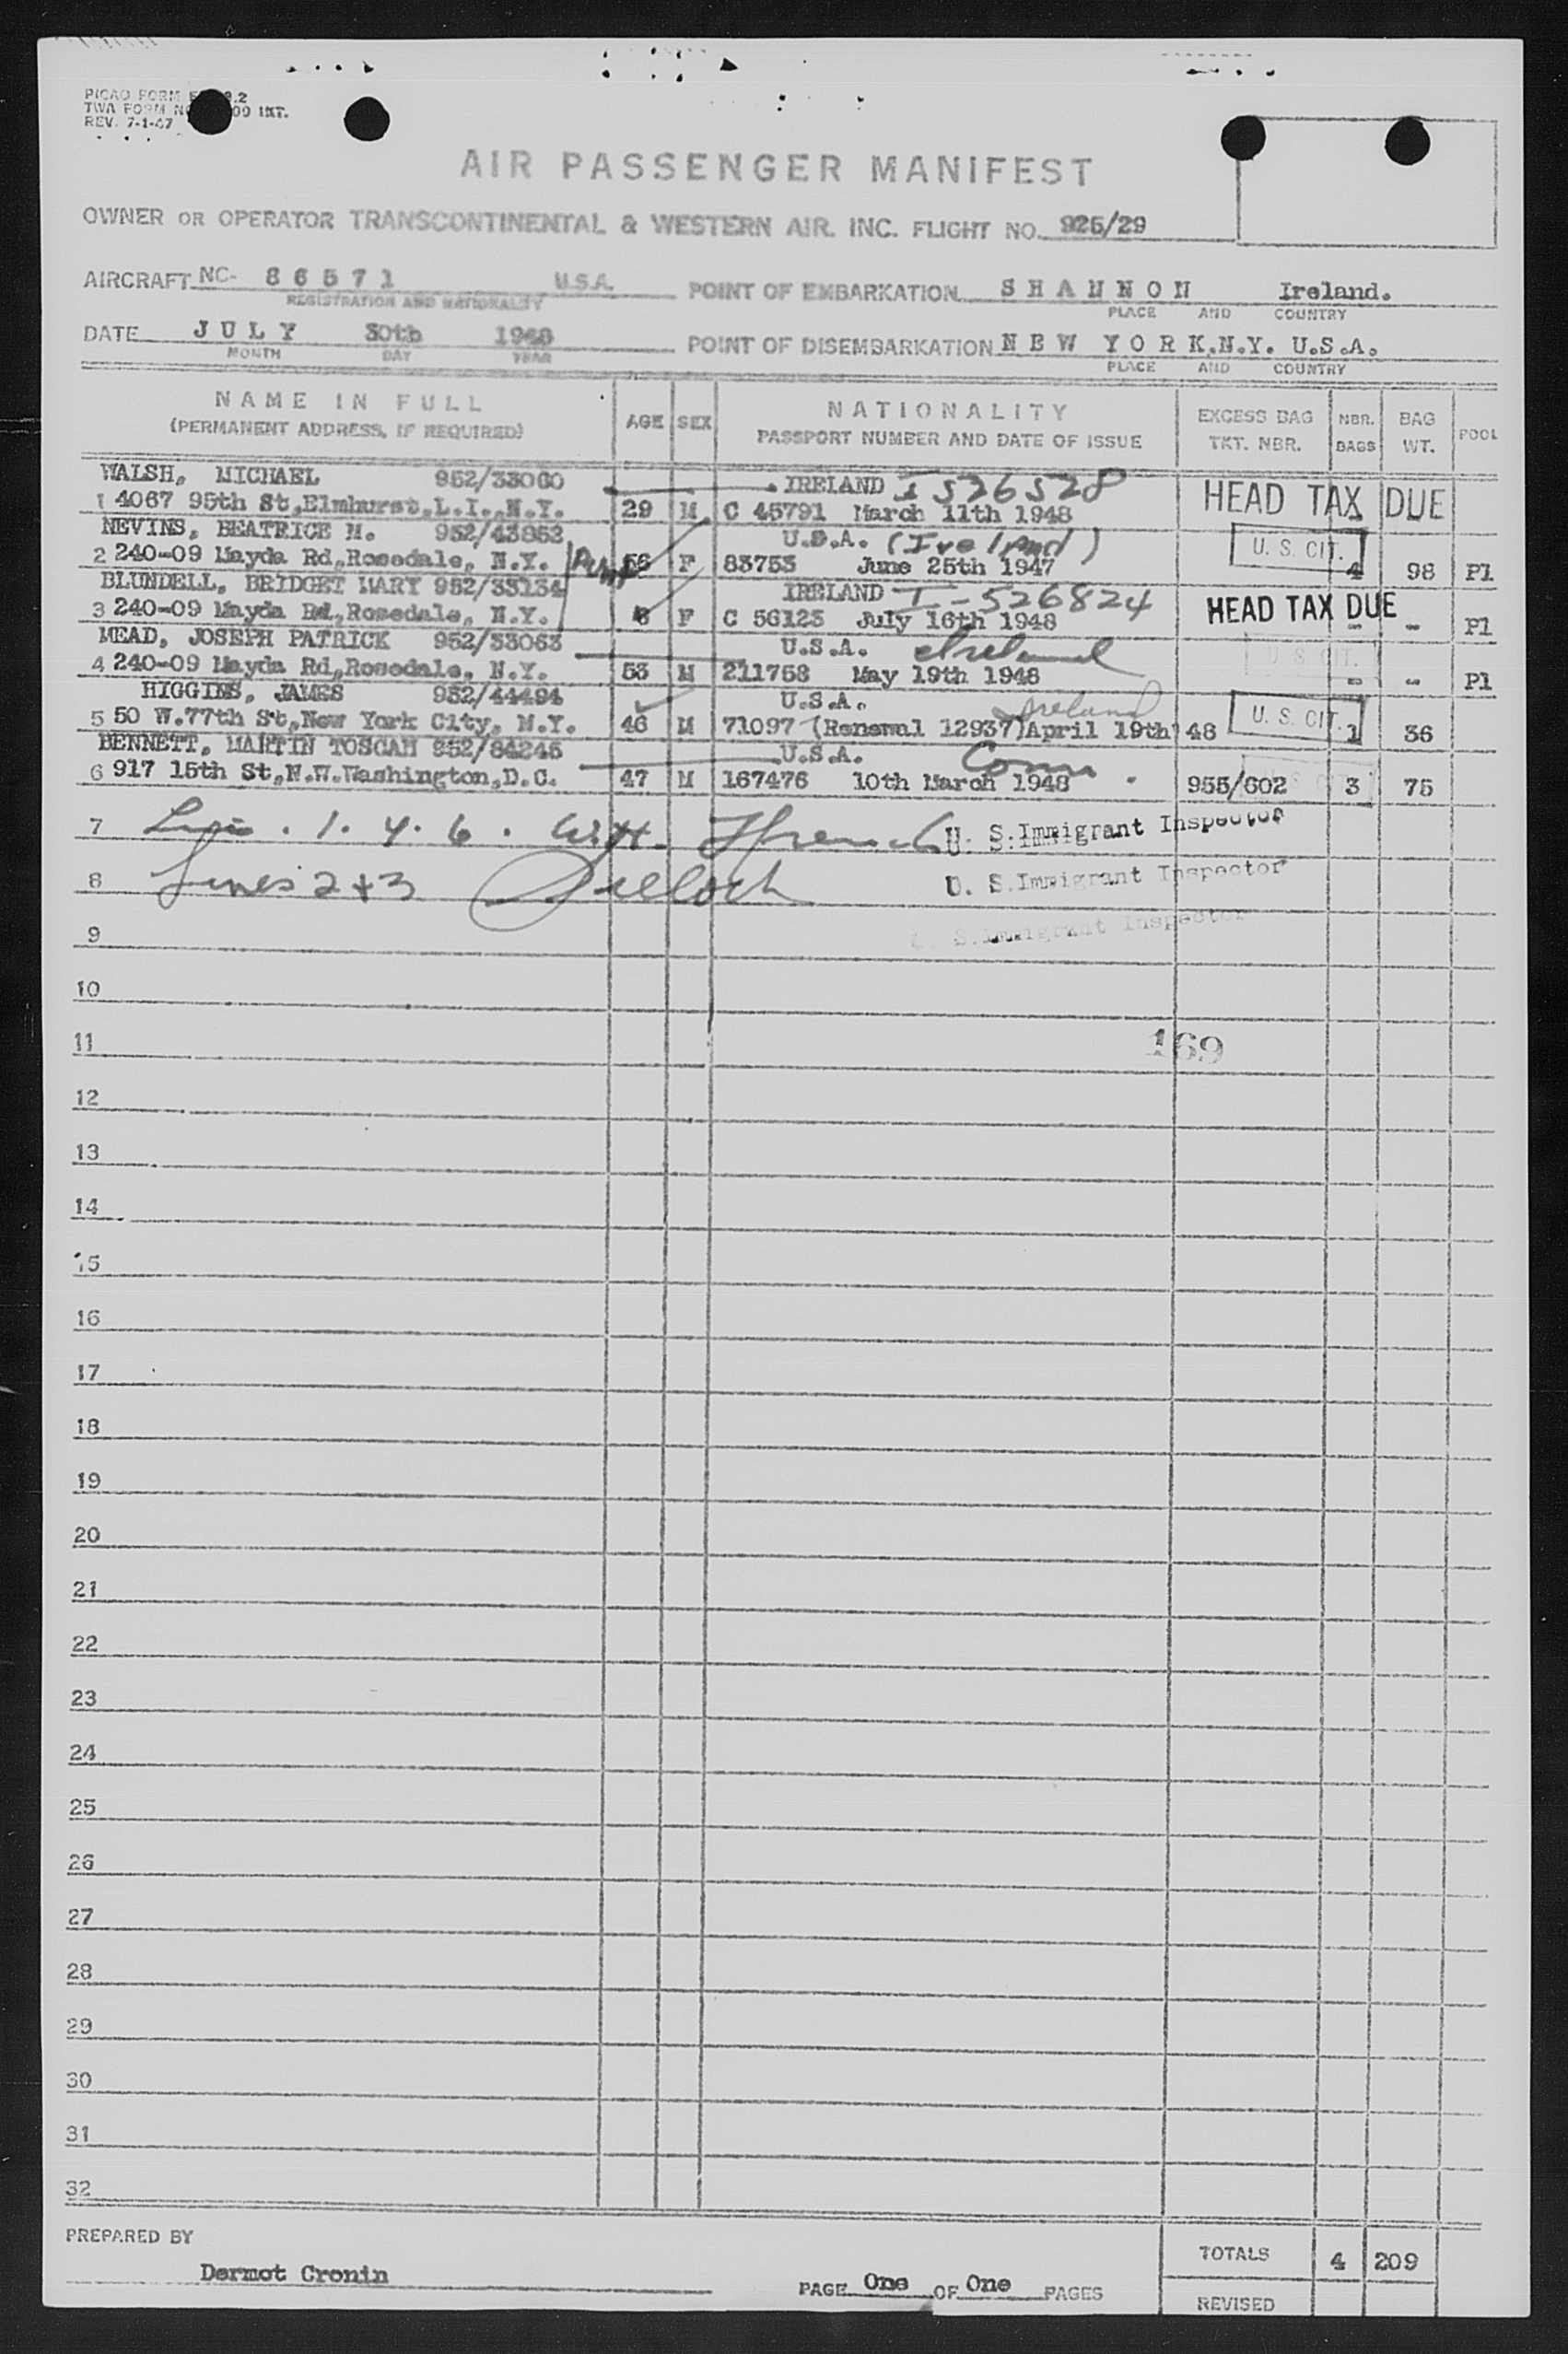 PICAO FORM
TWA FORM INT.
REV. 7-1-47
AIR PASSENGER MANIFEST
OWNER OR OPERATOR TRANSCONTINENTAL & WESTERN AIR. INC. FLIGHT NO. 925/29
AIRCRAFT NC- 86571 U.S.A. POINT OF EMBARKATION SHANNON Ireland.
REGISTRATION AND NATIONALITY PLACE AND COUNTRY
DATE JULY 30th 1948 POINT OF DISEMBARKATION NEW YORK.N.Y. U.S.A.
MONTH DAY YEAR PLACE AND COUNTRY
NAME IN FULL AGE SEX NATIONALITY EXCESS BAG NBR. BAG POOL
(PERMANENT ADDRESS, IF REQUIRED) PASSPORT NUMBER AND DATE OF ISSUE TKT. NBR. BAGS WT.
WALSH, MICHAEL 952/33060 IRELAND I 526528
1 4067 95th St,Elmhurst,L.I.,N.Y. 29 M C 45791 March 11th 1948 HEAD TAX DUE
NEVINS, BEATRICE M. 952/43853 U.S.A. (Ireland) U. S. CIT.
2 240-09 Mayda Rd,Rosedale, N.Y. 56 F 83753 June 25th 1947 4 98 P1
BLUNDELL, BRIDGET MARY 952/33134 IRELAND I-526824
3 240-09 Mayda Rd,Rosedale, N.Y. F C 56123 July 16th 1948 HEAD TAX DUE - - P1
MEAD, JOSEPH PATRICK 952/33063 U.S.A. Ireland U. S. CIT.
4 240-09 Mayda Rd,Rosedale, N.Y. 53 M 211758 May 19th 1948 - - P1
HIGGINS, JAMES 952/44494 U.S.A. Ireland U. S. CIT.
5 50 W.77th St,New York City, N.Y. 46 M 71097 (Renewal 12937)April 19th 48 1 36
BENNETT, MARTIN TOSCAN 952/84245 U.S.A. Conn
6 917 15th St,N.W.Washington,D.C. 47 M 167476 10th March 1948 955/602 3 75
7 1. 4. 6. U. S. Immigrant Inspector
8 Lines 2+3 U. S. Immigrant Inspector
9 S. Immigrant Inspector
10
11 169
12
13
14
15
16
17
18
19
20
21
22
23
24
25
26
27
28
29
30
31
32
PREPARED BY TOTALS 4 209
Dermot Cronin PAGE One OF One PAGES
REVISED